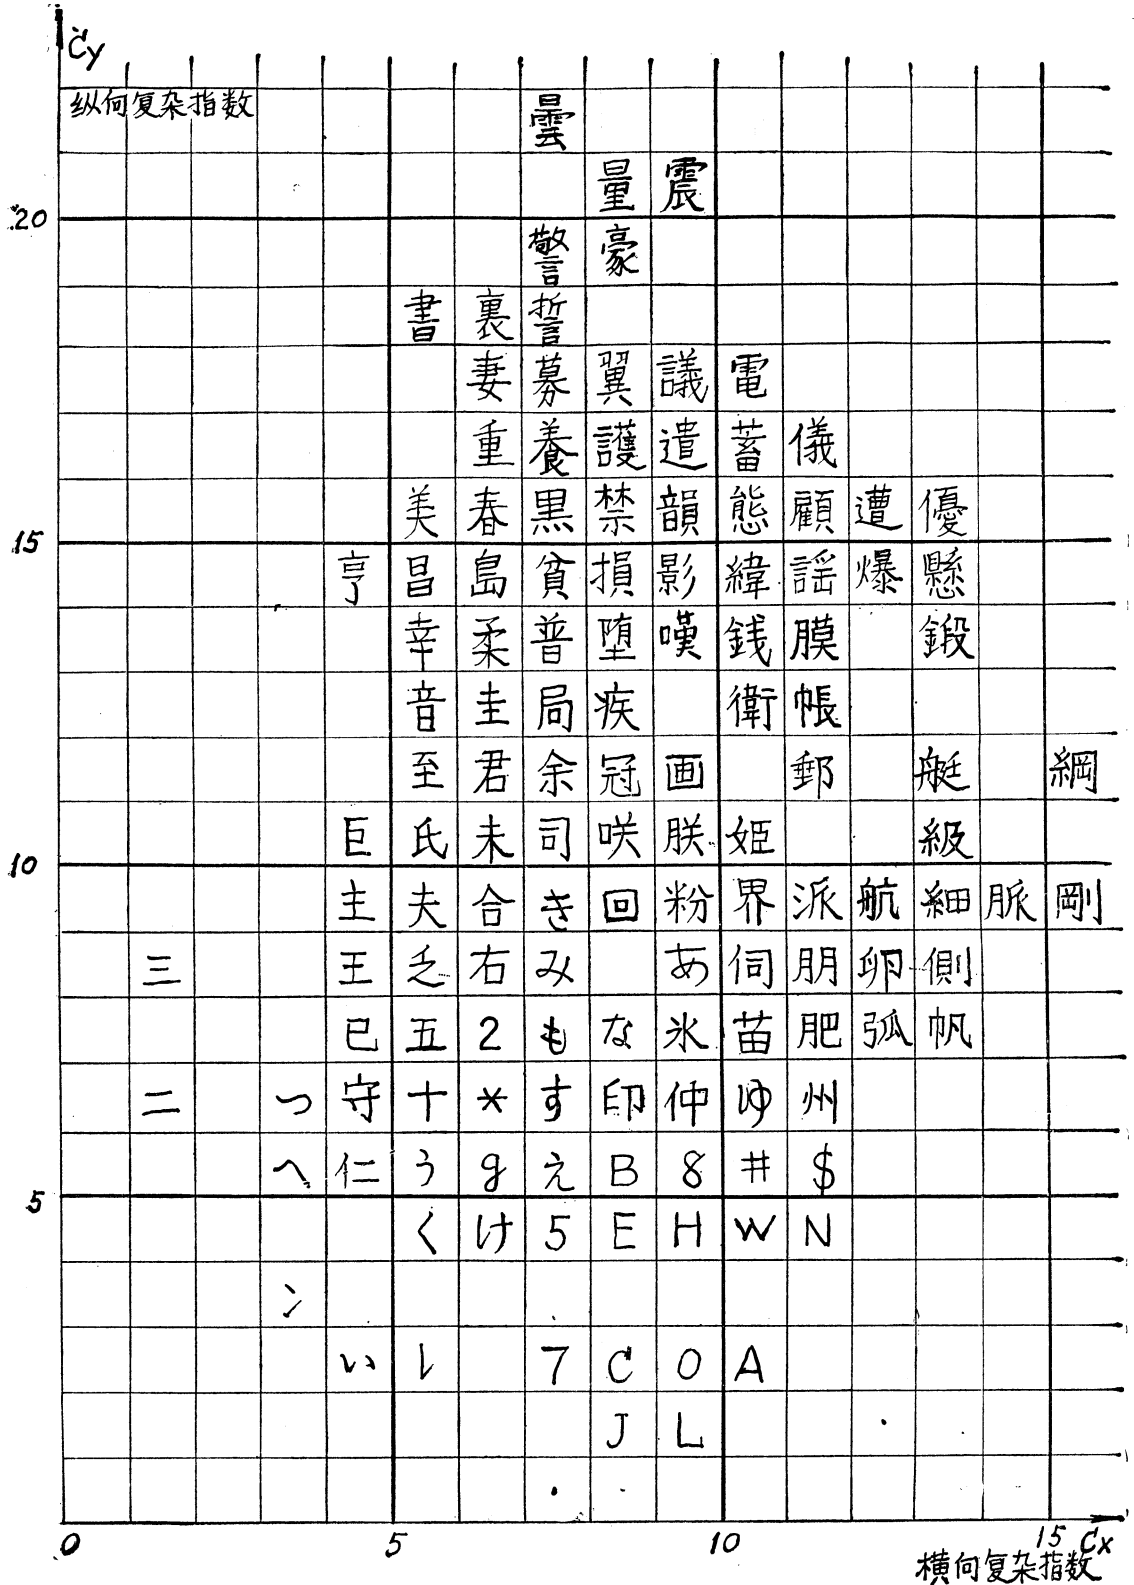 Cy
纵向复杂指数
曇
量 震
20
警 豪
書 裏 誓
妻 募 翼 議 電
重 養 護 遣 蓄 儀
美 春 黒 禁 韻 態 顧 遭 優
15
亨 昌 島 貧 損 影 緯 謡 爆 懸
幸 柔 普 堕 嘆 銭 膜 鍛
音 圭 局 疾 衛 帳
至 君 余 冠 画 郵 艇 綱
巨 氏 未 司 咲 朕 姫 級
10
主 夫 合 き 回 粉 界 派 航 細 脈 剛
三 王 乏 右 み あ 伺 朋 卵 側
已 五 2 も な 氷 苗 肥 弧 帆
二 っ 守 十 * す 印 仲 ゆ 州
へ 仁 う g え B 8 # $
5
く け 5 E H W N
ン
い し 7 C O A
J L
0 5 10 15 Cx
横向复杂指数